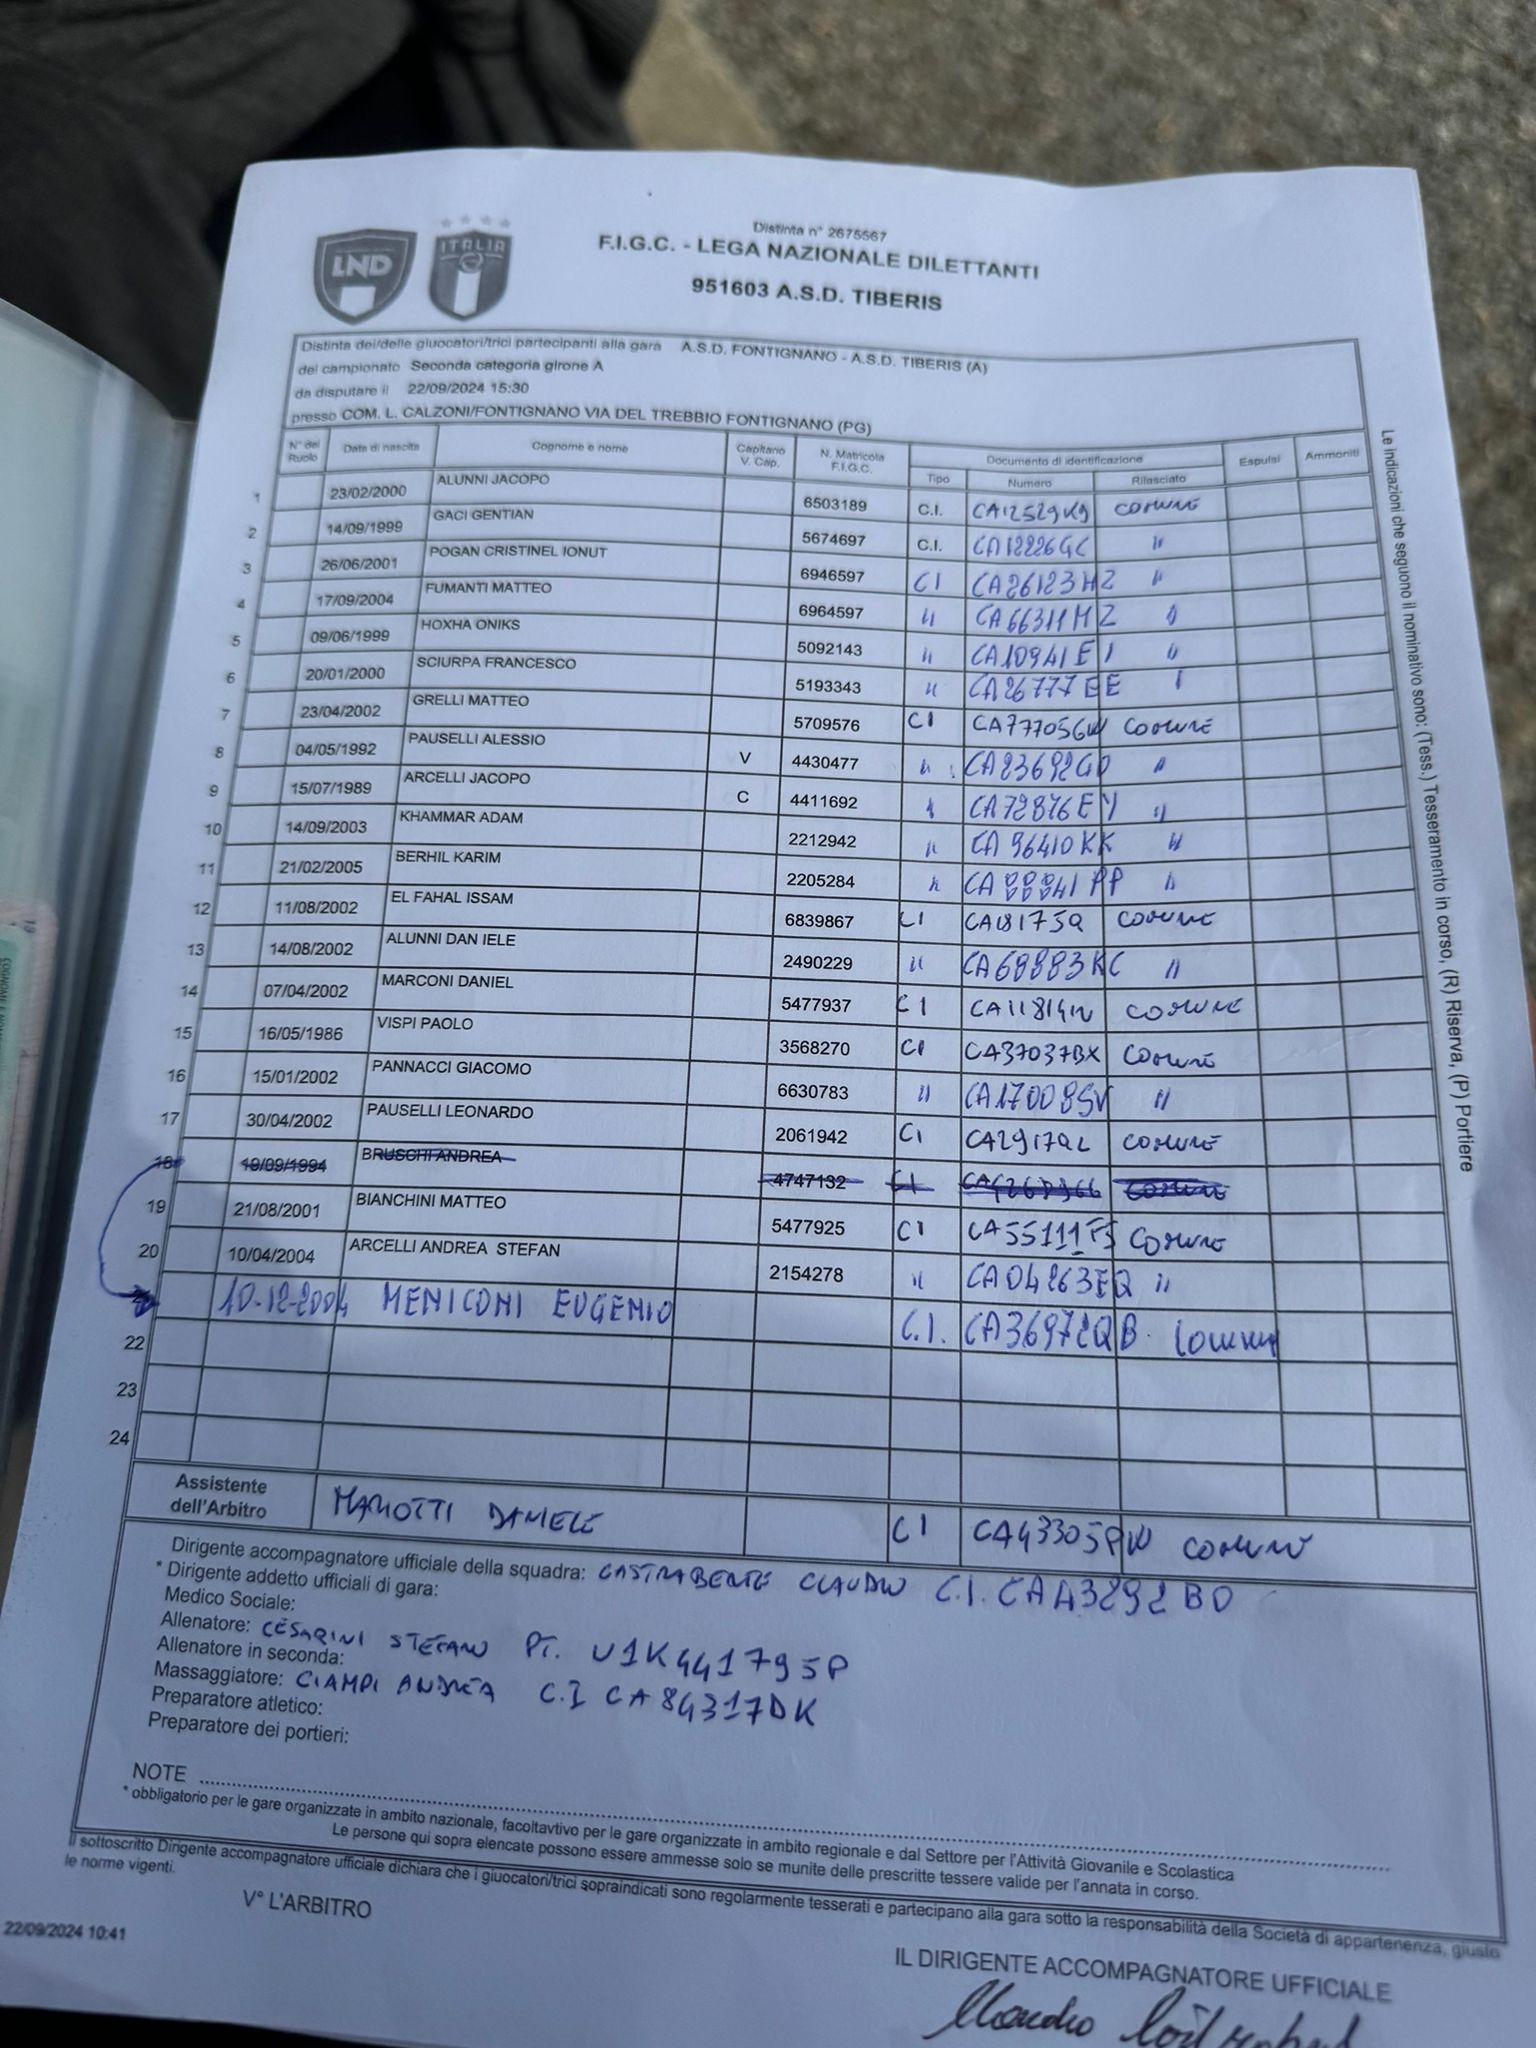 LND
ITALIA
Distinta n° 2675567
F.I.G.C. - LEGA NAZIONALE DILETTANTI
951603 A.S.D. TIBERIS
Distinta dei/delle giuocatori/trici partecipanti alla gara A.S.D. FONTIGNANO - A.S.D. TIBERIS (A)
del campionato Seconda categoria girone A
da disputare il 22/09/2024 15:30
presso COM. L. CALZONI/FONTIGNANO VIA DEL TREBBIO FONTIGNANO (PG)
N° del Ruolo Data di nascita Cognome e nome Capitano V. Cap. N. Matricola F.I.G.C. Documento di identificazione Espulsi Ammoniti
Tipo Numero Rilasciato
1 23/02/2000 ALUNNI JACOPO 6503189 C.I. CA12529KG COMUNE
2 14/09/1999 GACI GENTIAN 5674697 C.I. CA12226GC "
3 26/06/2001 POGAN CRISTINEL IONUT 6946597 CI CA26123HZ "
4 17/09/2004 FUMANTI MATTEO 6964597 " CA66311MZ "
5 09/06/1999 HOXHA ONIKS 5092143 " CA10941EI "
6 20/01/2000 SCIURPA FRANCESCO 5193343 " CA26777EE "
7 23/04/2002 GRELLI MATTEO 5709576 CI CA77705GW COMUNE
8 04/05/1992 PAUSELLI ALESSIO V 4430477 " CA23692GD "
9 15/07/1989 ARCELLI JACOPO C 4411692 " CA72876EY "
10 14/09/2003 KHAMMAR ADAM 2212942 " CA96410KK "
11 21/02/2005 BERHIL KARIM 2205284 " CA88841PP "
12 11/08/2002 EL FAHAL ISSAM 6839867 CI COMUNE
13 14/08/2002 ALUNNI DAN IELE 2490229 " CA69883KC "
14 07/04/2002 MARCONI DANIEL 5477937 CI CA11814IN COMUNE
15 16/05/1986 VISPI PAOLO 3568270 CI CA37037BX COMUNE
16 15/01/2002 PANNACCI GIACOMO 6630783 " CA17008SV "
17 30/04/2002 PAUSELLI LEONARDO 2061942 CI CA2917QL COMUNE
18 19/09/1994 BRUSCHI ANDREA 4747132 CI COMUNE
19 21/08/2001 BIANCHINI MATTEO 5477925 CI CA55111FS COMUNE
20 10/04/2004 ARCELLI ANDREA STEFAN 2154278 " CA04263EQ "
10-12-2004 MENICONI EUGENIO C.I. CA36972QB COMUNE
22
23
24
Assistente dell'Arbitro MARIOTTI DANIELE CI CA43305PW COMUNE
Dirigente accompagnatore ufficiale della squadra: CASTRABERTE CLAUDIO C.I. CA43292BD
* Dirigente addetto ufficiali di gara:
Medico Sociale:
Allenatore: CESARINI STEFANO PT. U1K441795P
Allenatore in seconda:
Massaggiatore: CIAMPI ANDREA C.I CA84317DK
Preparatore atletico:
Preparatore dei portieri:
NOTE
* obbligatorio per le gare organizzate in ambito nazionale, facoltavtivo per le gare organizzate in ambito regionale e dal Settore per l'Attività Giovanile e Scolastica
Le persone qui sopra elencate possono essere ammesse solo se munite delle prescritte tessere valide per l'annata in corso.
Il sottoscritto Dirigente accompagnatore ufficiale dichiara che i giuocatori/trici sopraindicati sono regolarmente tesserati e partecipano alla gara sotto la responsabilità della Società di appartenenza, giusto
le norme vigenti.
V° L'ARBITRO
22/09/2024 10:41
IL DIRIGENTE ACCOMPAGNATORE UFFICIALE
Le indicazioni che seguono il nominativo sono: (Tess.) Tesseramento in corso, (R) Riserva, (P) Portiere